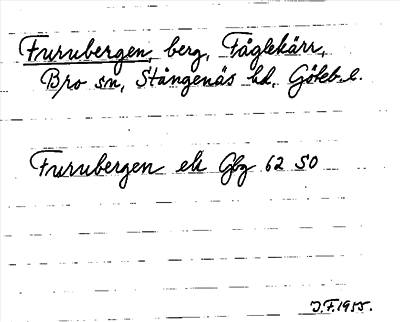 Furubergen, berg, Fåglekärr,
Bro sn, Stångenäs hd, Göteb. l.
Furubergen ek Gbg 62 SO
J.F. 1955.